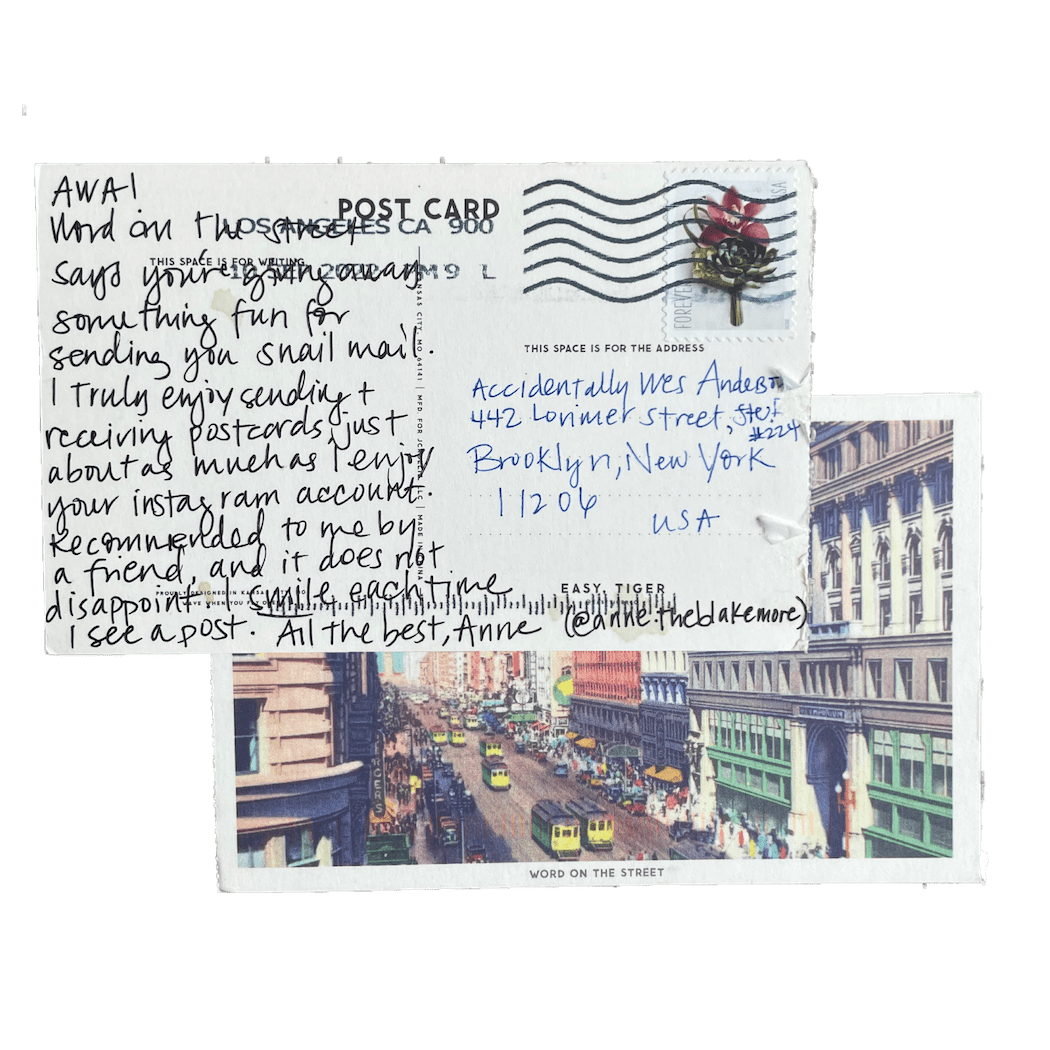 AWA!
Word on the street
says you're giving away
something fun for
sending you snail mail.
I Truly enjoy sending +
receiving postcards, just
about as much as I enjoy
your instagram account.
Recommended to me by
a friend, and it does not
disappoint. I smile each time
I see a post. All the best, Anne (@anne.theblakemore)
POST CARD
LOS ANGELES CA 900
THIS SPACE IS FOR WRITING
10 2022 M 9 L
KANSAS CITY, MO 64141 | MFD. FOR LLC | MADE IN CHINA
PROUDLY DESIGNED IN KANSAS
WAVE WHEN YOU
FOREVER
USA
THIS SPACE IS FOR THE ADDRESS
Accidentally Wes Anderson
442 Lorimer Street, Ste
#224
Brooklyn, New York
11206
USA
EASY, TIGER
WORD ON THE STREET